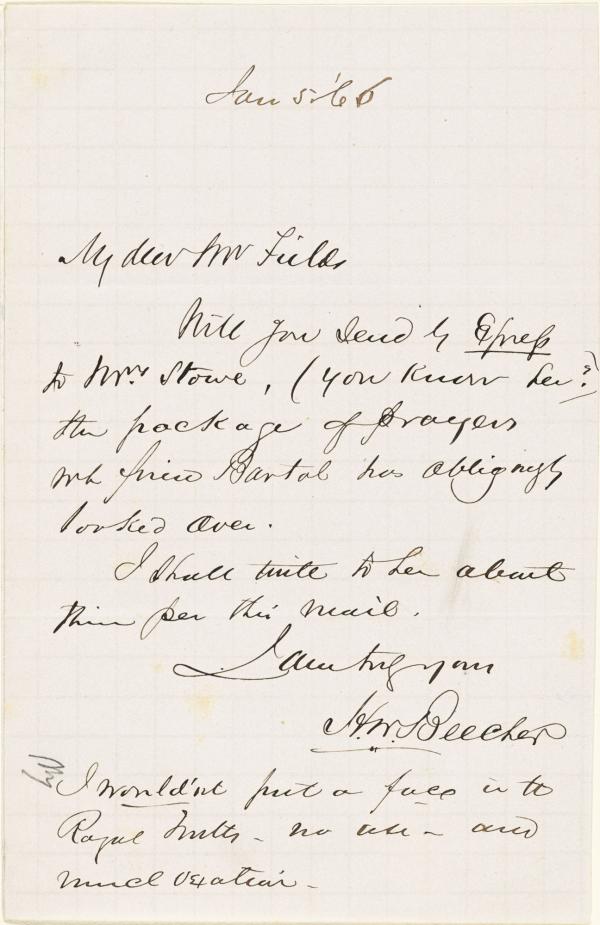 Jan 5. '66
My dear Mr Fields
Will you send by Express
to Mrs. Stowe, (you know her?)
the package of prayers
wh friend Bartol has obligingly
looked over.
I shall write to her about
them per this mail.
I am truly yours
H.W. Beecher
I wouldn't put a face in to
Royal Truths - no use - and
much vexation -